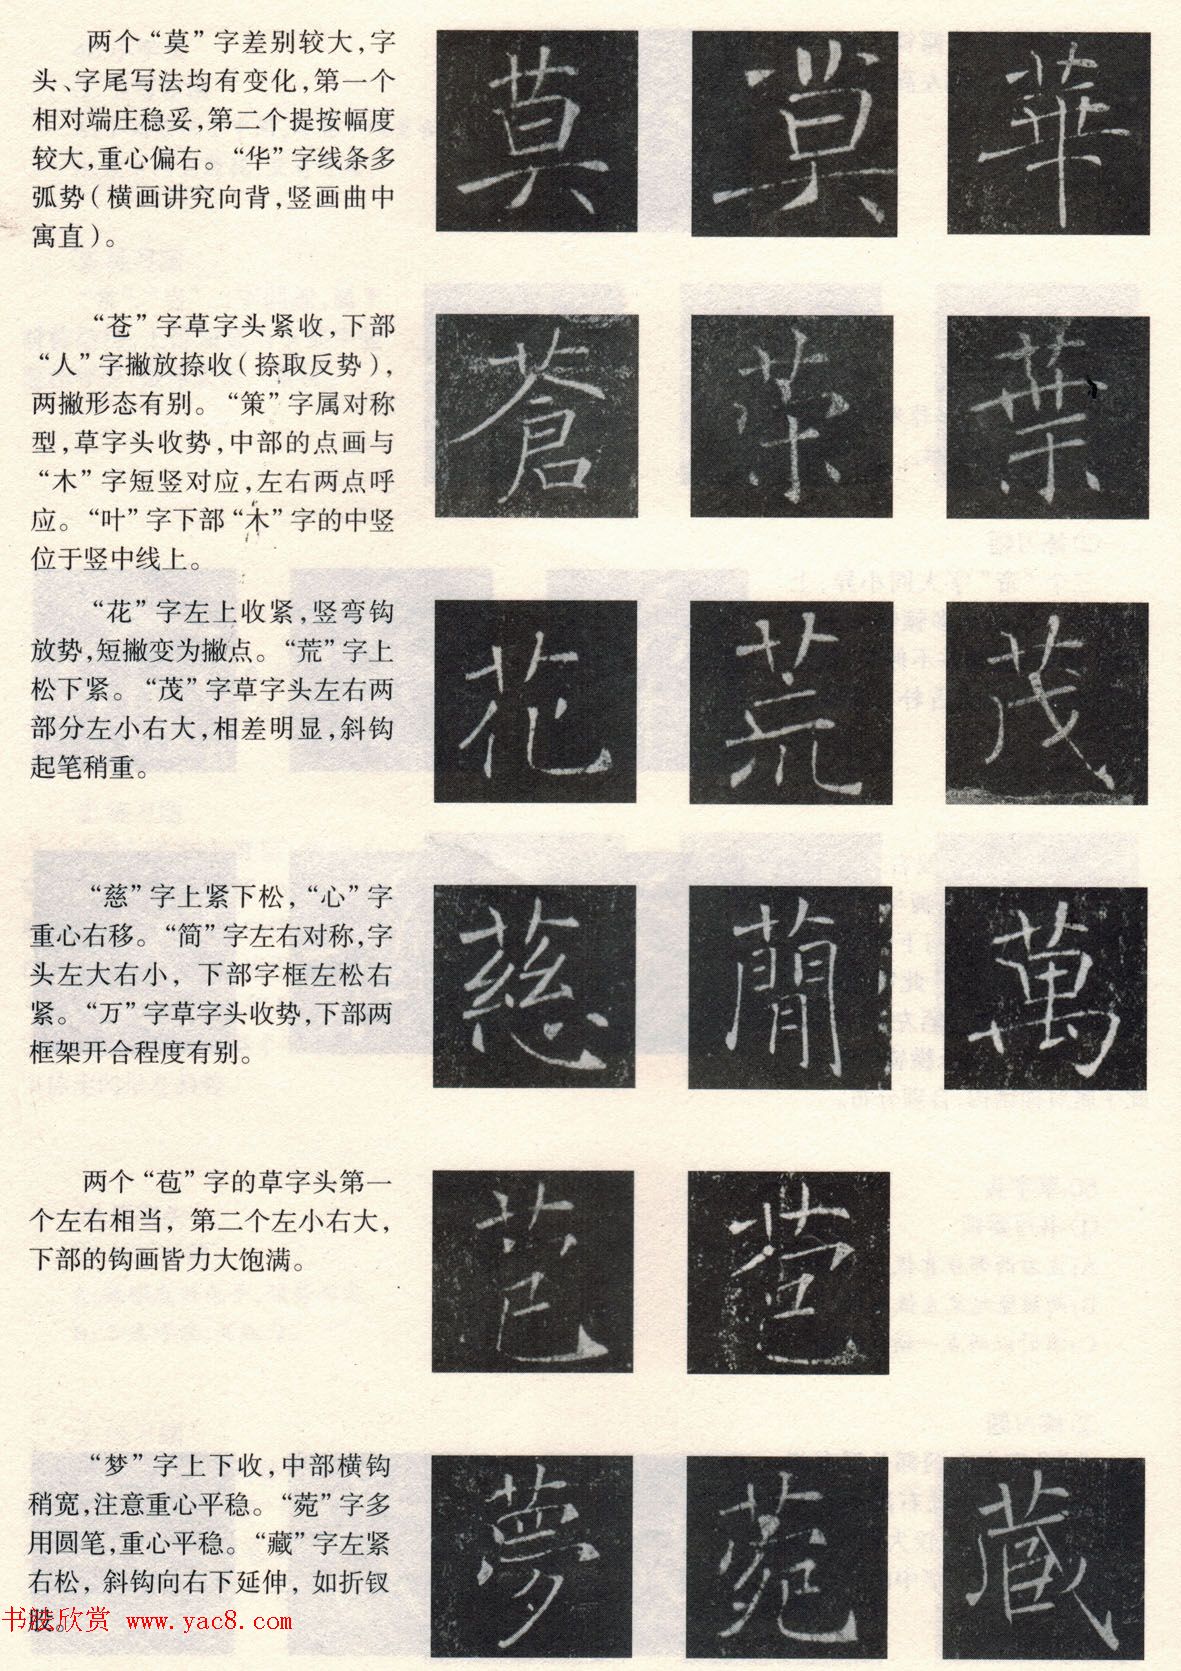 两个“莫”字差别较大,字
头、字尾写法均有变化,第一个
相对端庄稳妥,第二个提按幅度
较大,重心偏右。“华”字线条多
弧势(横画讲究向背,竖画曲中
寓直)。
莫 莫 華
“苍”字草字头紧收,下部
“人”字撇放捺收(捺取反势),
两撇形态有别。“策”字属对称
型,草字头收势,中部的点画与
“木”字短竖对应,左右两点呼
应。“叶”字下部“木”字的中竖
位于竖中线上。
蒼 策 葉
“花”字左上收紧,竖弯钩
放势,短撇变为撇点。“荒”字上
松下紧。“茂”字草字头左右两
部分左小右大,相差明显,斜钩
起笔稍重。
花 荒 茂
“慈”字上紧下松,“心”字
重心右移。“简”字左右对称,字
头左大右小,下部字框左松右
紧。“万”字草字头收势,下部两
框架开合程度有别。
慈 簡 萬
两个“苞”字的草字头第一
个左右相当,第二个左小右大,
下部的钩画皆力大饱满。
苞 苞
“梦”字上下收,中部横钩
稍宽,注意重心平稳。“菀”字多
用圆笔,重心平稳。“藏”字左紧
右松,斜钩向右下延伸,如折钗
股。
夢 菀 藏
书法欣赏 www.yac8.com